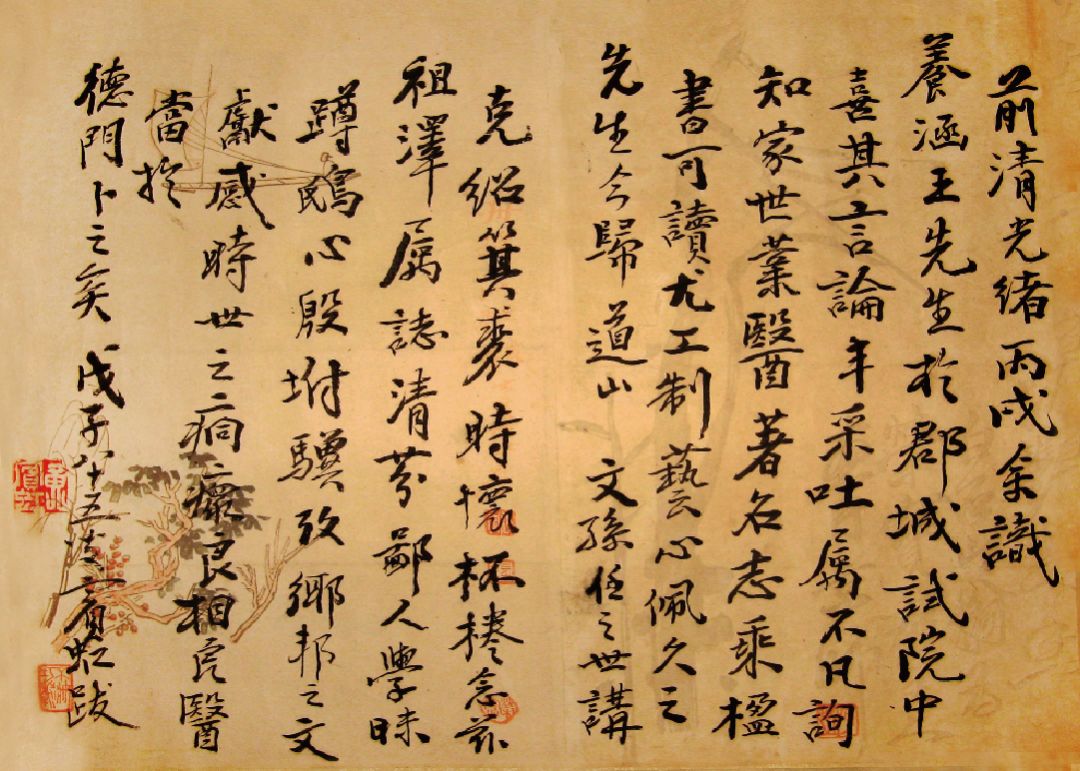 前清光緒丙戌余識
養涵王先生於郡城試院中
喜其言論丰采吐属不凡詢
知家世業醫著名志乘楹
書可讀尤工制藝心佩久之
先生今歸道山 文孫任之世講
克紹箕裘時懷桮棬念茲
祖澤属誌清芬鄙人學昧
蹲鴟心殷坿驥攷鄉邦之文
獻感時世之痌瘝良相良醫
當於
德門卜之矣 戊子八十五叟賓虹跋